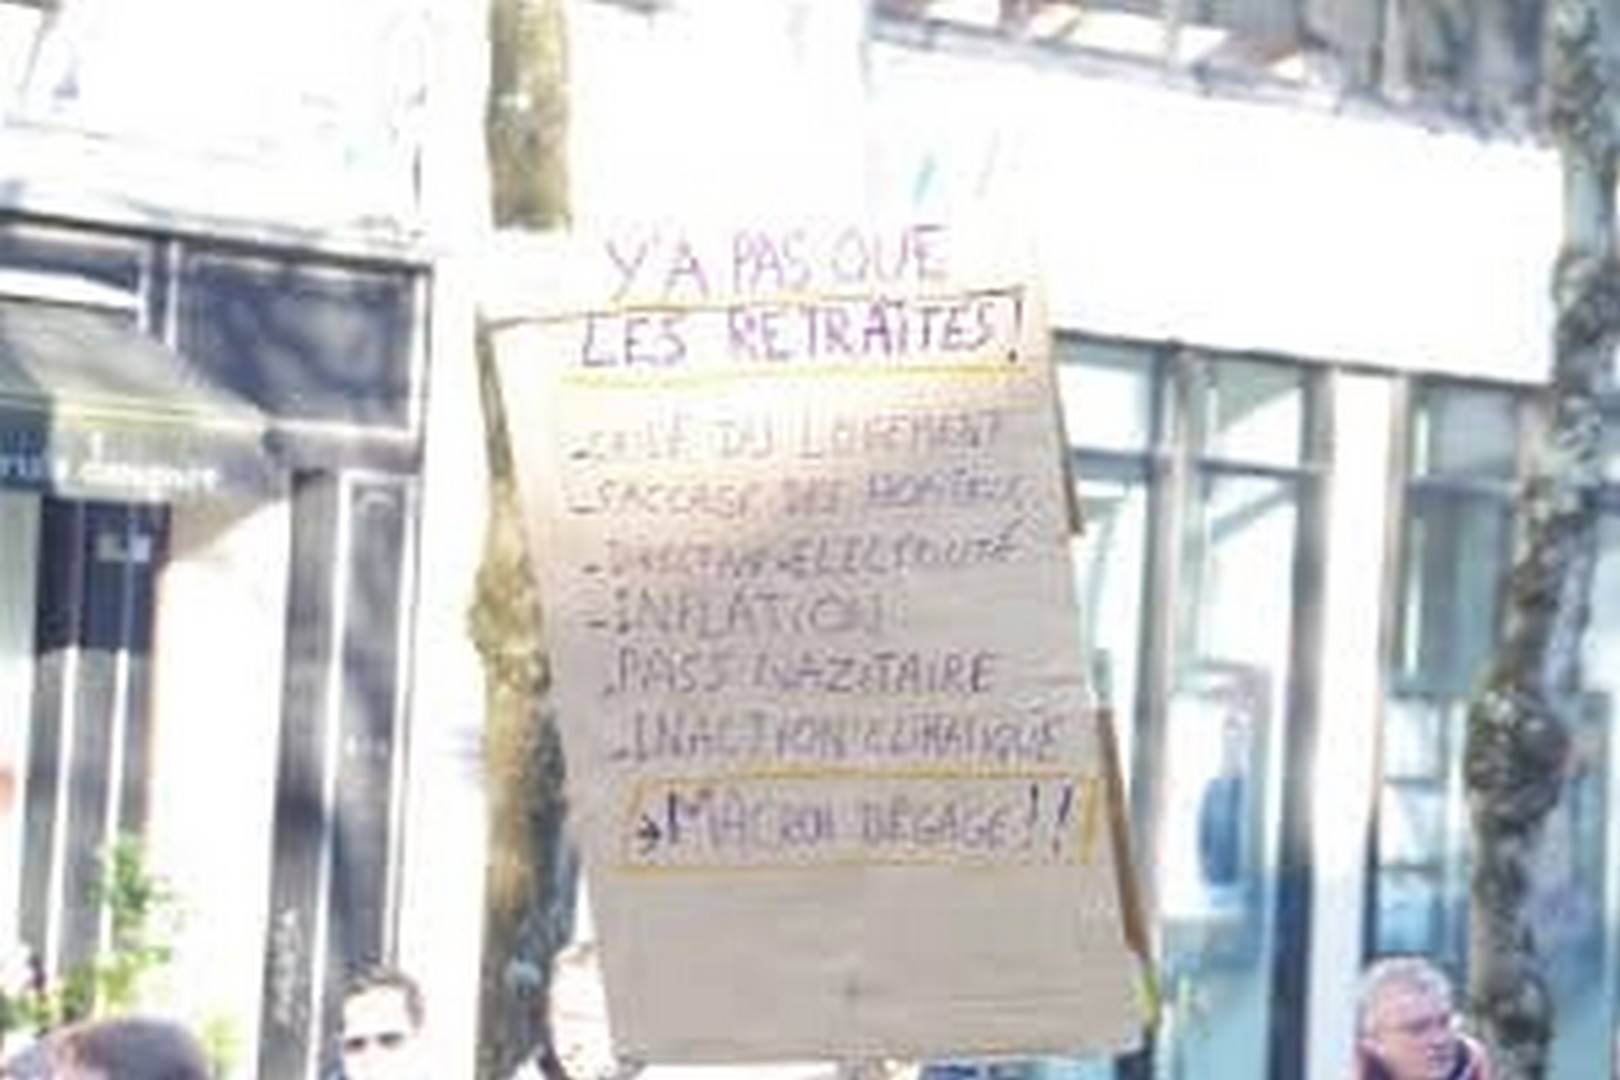 Y'A PAS QUE
LES RETRAITES!
- DU LOGEMENT
- SACCAGE DES
-
- INFLATION
- PASS NAZITAIRE
- INACTION CLIMATIQUE
→ MACRON DÉGAGE!!